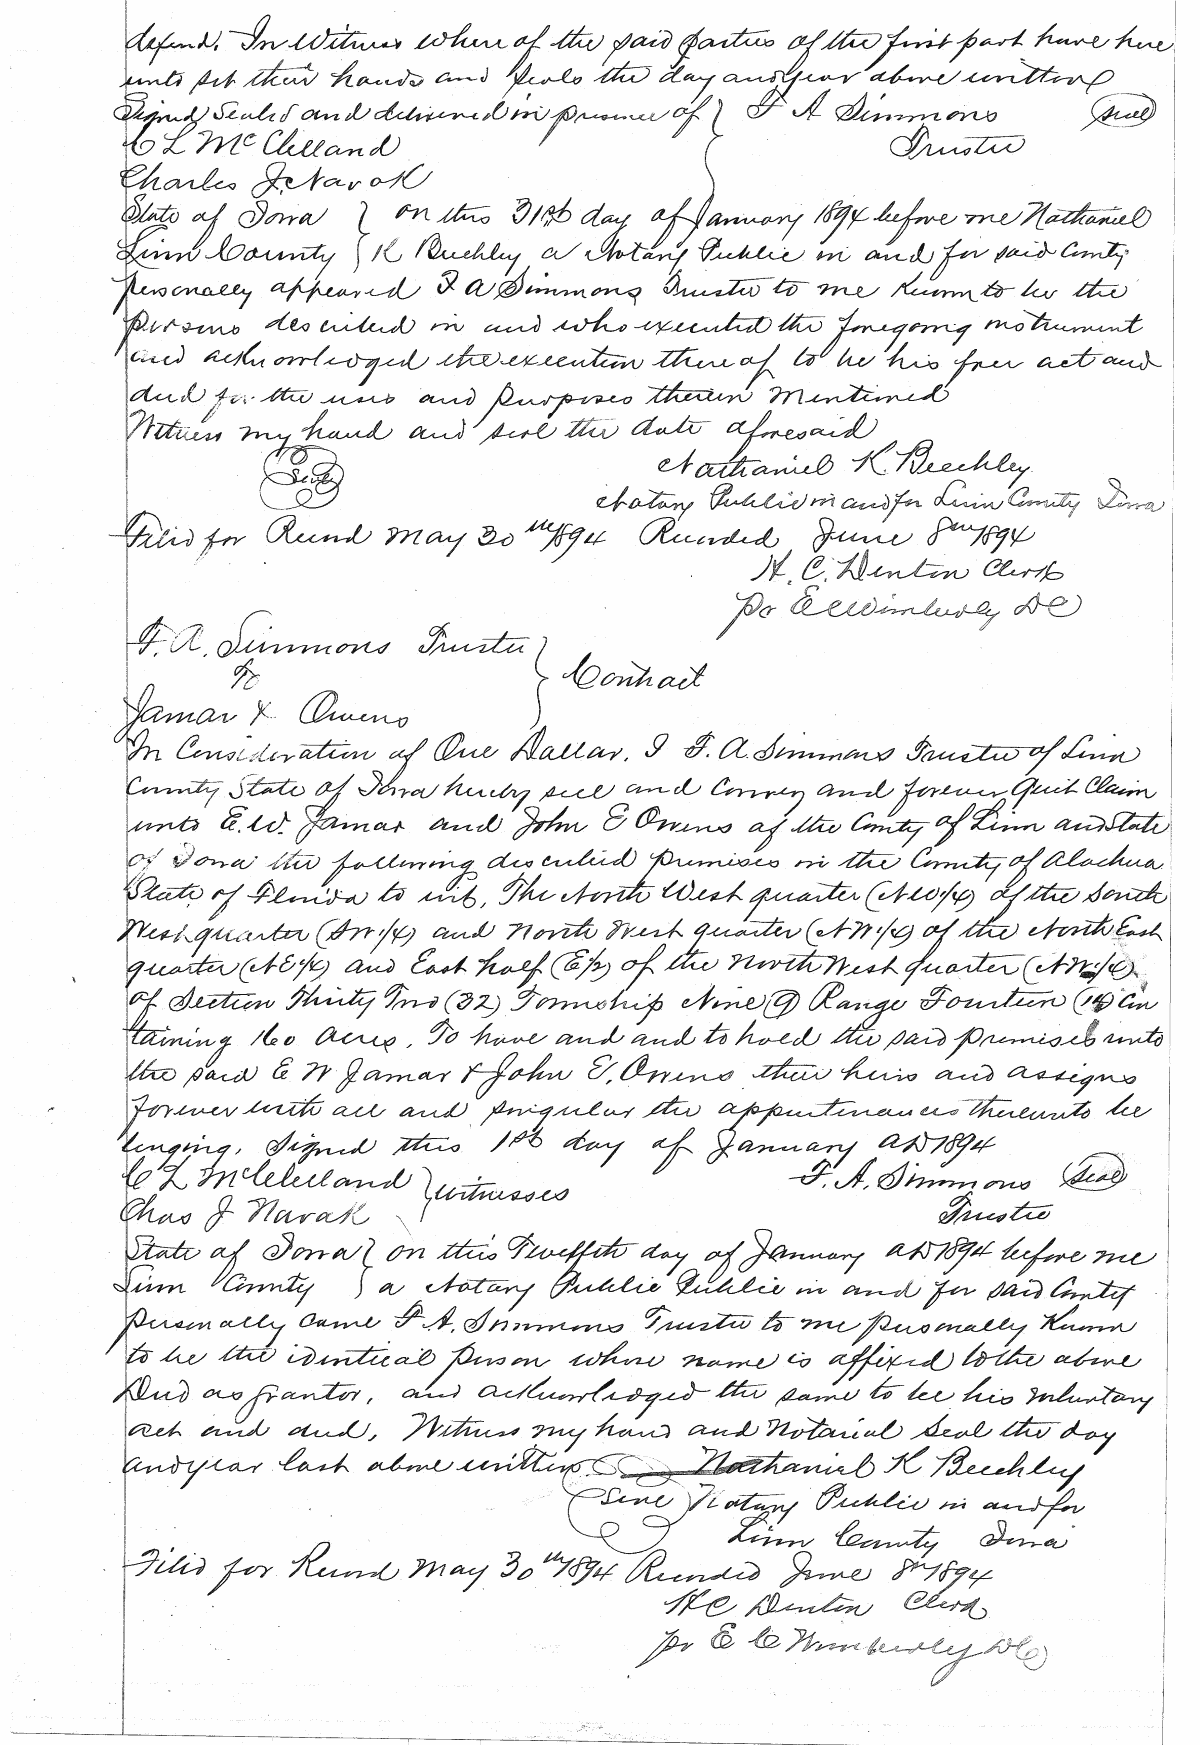 defend. In Witness where of the said parties of the first part have here
unto set their hands and seals the day and year above written
Signed Sealed and delivered in presence of } F A Simmons (seal)
C L McClelland Trustee
Charles J. Navok
State of Iowa } on this 31st day of January 1894 before me Nathaniel
Linn County } K Beechley a Notary Public in and for said County
personally appeared F A Simmons Trustee to me Known to be the
persons described in and who executed the foregoing instrument
and acknowledged the execution there of to be his free act and
deed for the uses and purposes therein Mentioned
Witness my hand and seal the date aforesaid
(Seal) Nathaniel K. Beechley.
Notary Public in and for Linn County Iowa
Filed for Record May 30th 1894 Recorded June 8th 1894
H. C. Denton Clerk
pr E C Wimberly D C
F. A. Simmons Trustee }
To } Contract
Jamar & Owens
In Consideration of One Dollar. I F. A. Simmons Trustee of Linn
County State of Iowa hereby sell and Convey and forever Quit Claim
unto E. W. Jamar and John E Owens of the County of Linn and State
of Iowa the following described premises in the County of Alachua
State of Florida to wit, The North West quarter (NW¼) of the South
West quarter (SW¼) and North West quarter (NW¼) of the North East
quarter (NE¼) and East half (E½) of the North West quarter (NW¼)
of Section Thirty Two (32) Township Nine (9) Range Fourteen (14) Con
taining 160 Acres. To have and and to hold the said premises unto
the said E W Jamar & John E. Owens their heirs and assigns
forever with all and singular the appurtinances thereunto be
longing. Signed this 1st day of January AD 1894
C L McClelland } witnesses F. A. Simmons (seal)
Chas J Navak Trustee
State of Iowa } on this Twelfth day of January AD 1894 before me
Linn County } a Notary Public Public in and for said County
personally came F A. Simmons Trustee to me personally Known
to be the identical person whose name is affixed to the above
Deed as grantor, and acknowledged the same to be his voluntary
act and deed, Witness my hand and Notarial Seal the day
and year last above written Nathaniel K Beechley
(Seal) Notary Public in and for
Linn County Iowa
Filed for Record May 30th 1894 Recorded June 8th 1894
H C Denton Clerk
pr E C Wimberley D C